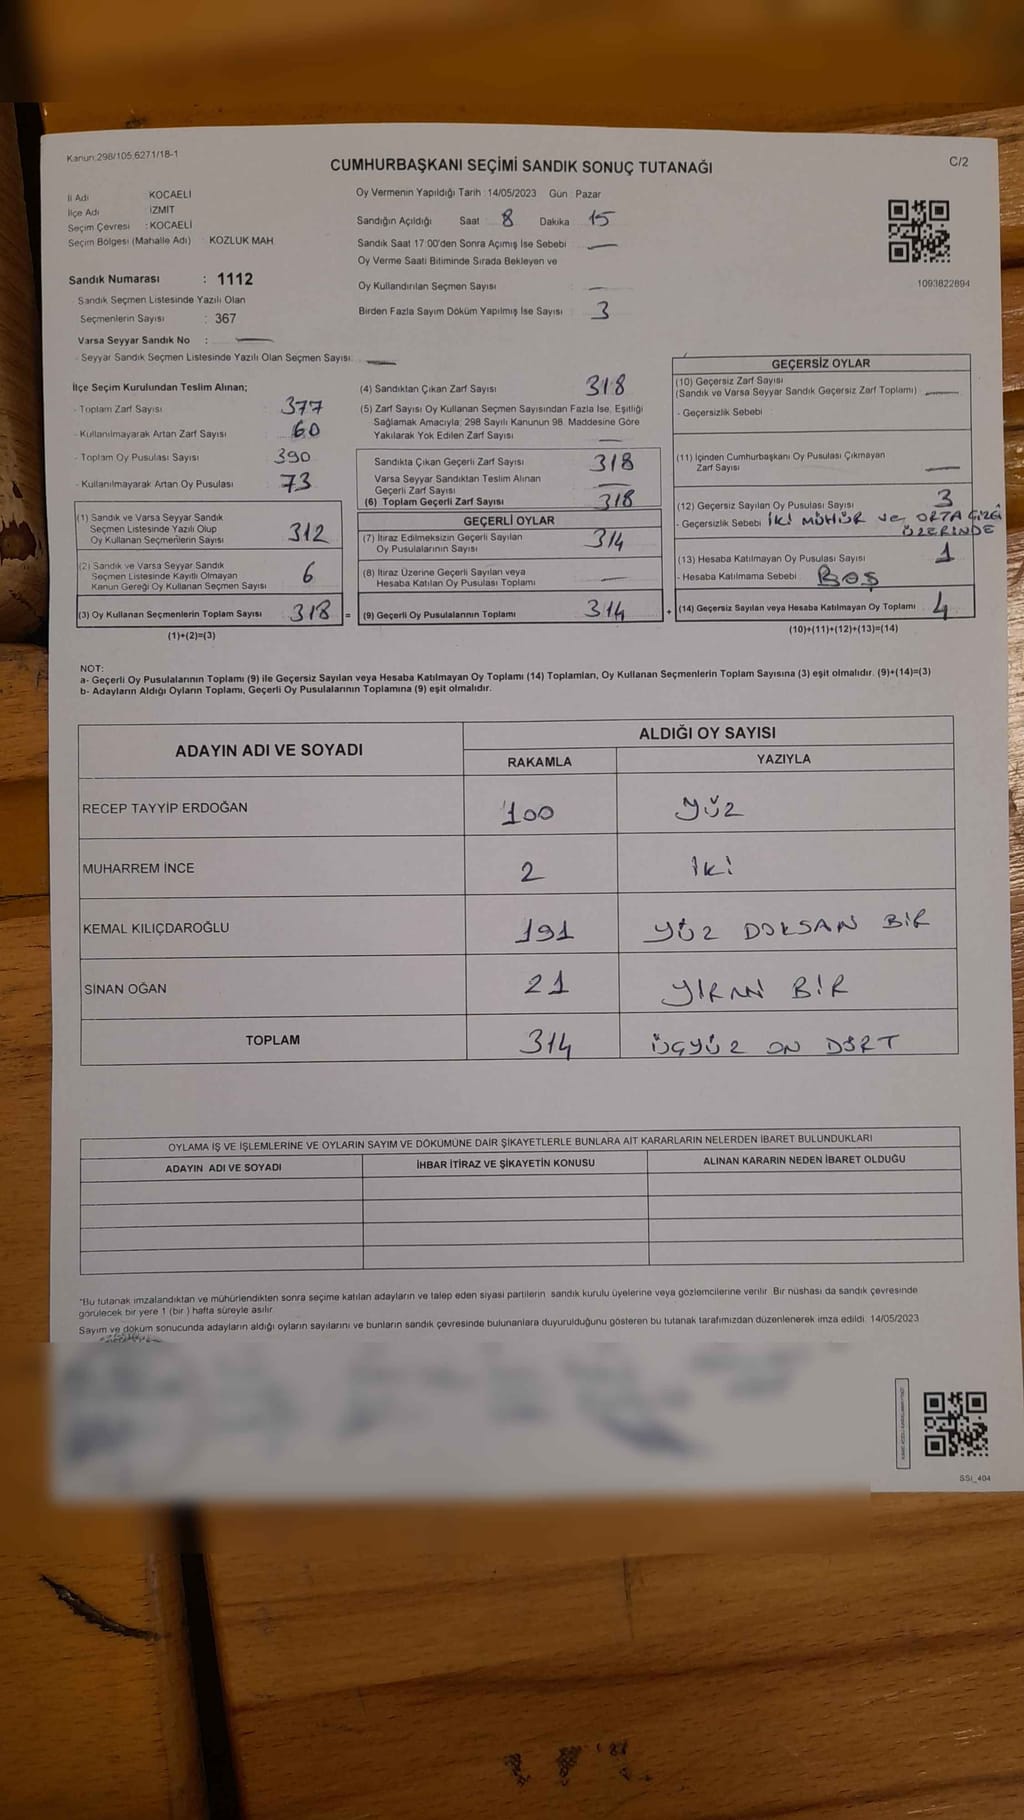 Kanun:298/105,6271/18-1
CUMHURBAŞKANI SEÇİMİ SANDIK SONUÇ TUTANAĞI
C/2
İl Adı : KOCAELİ
İlçe Adı : İZMİT
Seçim Çevresi : KOCAELİ
Seçim Bölgesi (Mahalle Adı) : KOZLUK MAH.
Oy Vermenin Yapıldığı Tarih : 14/05/2023 Gün : Pazar
Sandığın Açıldığı Saat 8 Dakika 15
Sandık Saat 17:00'den Sonra Açımış İse Sebebi —
Oy Verme Saati Bitiminde Sırada Bekleyen ve
Oy Kullandırılan Seçmen Sayısı —
Birden Fazla Sayım Döküm Yapılmış İse Sayısı 3
1093822894
Sandık Numarası : 1112
Sandık Seçmen Listesinde Yazılı Olan
Seçmenlerin Sayısı : 367
Varsa Seyyar Sandık No : —
- Seyyar Sandık Seçmen Listesinde Yazılı Olan Seçmen Sayısı: —
İlçe Seçim Kurulundan Teslim Alınan;
- Toplam Zarf Sayısı 377
- Kullanılmayarak Artan Zarf Sayısı 60
- Toplam Oy Pusulası Sayısı 390
- Kullanılmayarak Artan Oy Pusulası 73
(1) Sandık ve Varsa Seyyar Sandık
Seçmen Listesinde Yazılı Olup
Oy Kullanan Seçmenlerin Sayısı 312
(2) Sandık ve Varsa Seyyar Sandık
Seçmen Listesinde Kayıtlı Olmayan
Kanun Gereği Oy Kullanan Seçmen Sayısı 6
(3) Oy Kullanan Seçmenlerin Toplam Sayısı 318 =
(1)+(2)=(3)
(4) Sandıktan Çıkan Zarf Sayısı 318
(5) Zarf Sayısı Oy Kullanan Seçmen Sayısından Fazla İse, Eşitliği
Sağlamak Amacıyla; 298 Sayılı Kanunun 98. Maddesine Göre
Yakılarak Yok Edilen Zarf Sayısı —
Sandıkta Çıkan Geçerli Zarf Sayısı 318
Varsa Seyyar Sandıktan Teslim Alınan
Geçerli Zarf Sayısı —
(6) Toplam Geçerli Zarf Sayısı 318
GEÇERLİ OYLAR
(7) İtiraz Edilmeksizin Geçerli Sayılan
Oy Pusulalarının Sayısı 314
(8) İtiraz Üzerine Geçerli Sayılan veya
Hesaba Katılan Oy Pusulası Toplamı —
(9) Geçerli Oy Pusulalarının Toplamı 314 +
GEÇERSİZ OYLAR
(10) Geçersiz Zarf Sayısı
(Sandık ve Varsa Seyyar Sandık Geçersiz Zarf Toplamı) —
- Geçersizlik Sebebi :
(11) İçinden Cumhurbaşkanı Oy Pusulası Çıkmayan
Zarf Sayısı —
(12) Geçersiz Sayılan Oy Pusulası Sayısı 3
- Geçersizlik Sebebi İKİ MÜHÜR ve ORTA ÇİZGİ
ÜZERİNDE
(13) Hesaba Katılmayan Oy Pusulası Sayısı 1
- Hesaba Katılmama Sebebi BOŞ
(14) Geçersiz Sayılan veya Hesaba Katılmayan Oy Toplamı 4
(10)+(11)+(12)+(13)=(14)
NOT:
a- Geçerli Oy Pusulalarının Toplamı (9) ile Geçersiz Sayılan veya Hesaba Katılmayan Oy Toplamı (14) Toplamları, Oy Kullanan Seçmenlerin Toplam Sayısına (3) eşit olmalıdır. (9)+(14)=(3)
b- Adayların Aldığı Oyların Toplamı, Geçerli Oy Pusulalarının Toplamına (9) eşit olmalıdır.
ADAYIN ADI VE SOYADI
ALDIĞI OY SAYISI
RAKAMLA YAZIYLA
RECEP TAYYİP ERDOĞAN 100 YÜZ
MUHARREM İNCE 2 İKİ
KEMAL KILIÇDAROĞLU 191 YÜZ DOKSAN BİR
SİNAN OĞAN 21 YİRMİ BİR
TOPLAM 314 ÜÇYÜZ ON DÖRT
OYLAMA İŞ VE İŞLEMLERİNE VE OYLARIN SAYIM VE DÖKÜMÜNE DAİR ŞİKAYETLERLE BUNLARA AİT KARARLARIN NELERDEN İBARET BULUNDUKLARI
ADAYIN ADI VE SOYADI İHBAR İTİRAZ VE ŞİKAYETİN KONUSU ALINAN KARARIN NEDEN İBARET OLDUĞU
*Bu tutanak imzalandıktan ve mühürlendikten sonra seçime katılan adayların ve talep eden siyasi partilerin sandık kurulu üyelerine veya gözlemcilerine verilir. Bir nüshası da sandık çevresinde
görülecek bir yere 1 (bir ) hafta süreyle asılır.
Sayım ve döküm sonucunda adayların aldığı oyların sayılarını ve bunların sandık çevresinde bulunanlara duyurulduğunu gösteren bu tutanak tarafımızdan düzenlenerek imza edildi. 14/05/2023
SSİ_404